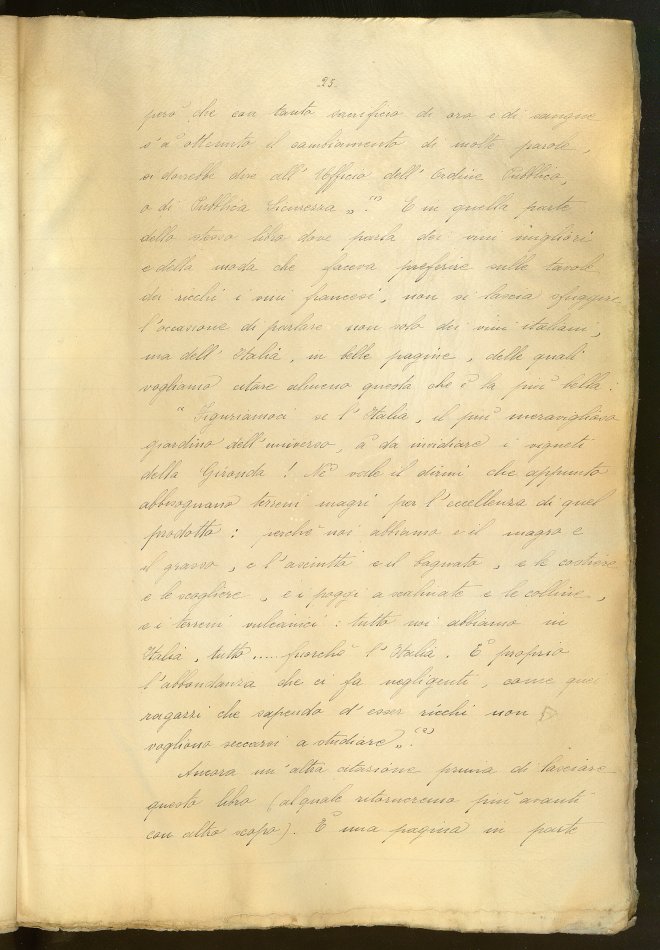 25.
però che con tanto sacrificio di oro e di sangue
s'à ottenuto il cambiamento di molte parole,
si dovrebbe dire all'Ufficio dell'Ordine Pubblico,
o di Pubblica Sicurezza „.⁽¹⁾ E in quella parte
dello stesso libro dove parla dei vini migliori
e della moda che faceva preferire sulle tavole
dei ricchi i vini francesi, non si lascia sfuggire
l'occasione di parlare non solo dei vini italiani,
ma dell'Italia, in belle pagine, delle quali
vogliamo citare almeno questa che è la più bella:
" Figuriamoci se l'Italia, il più meraviglioso
giardino dell'universo, à da invidiare i vigneti
della Gironda! Nè vale il dirmi che appunto
abbisognano terreni magri per l'eccellenza di quel
prodotto: perchè noi abbiamo e il magro e
il grasso, e l'asciutto e il bagnato, e le costiere
e le scogliere, e i poggi a scalinate e le colline,
e i terreni vulcanici: tutto noi abbiamo in
Italia, tutto..... fuorchè l'Italia. È proprio
l'abbondanza che ci fa negligenti, come quei
ragazzi che sapendo d'esser ricchi non
vogliono seccarsi a studiare „.⁽²⁾
Ancora un'altra citazione prima di lasciare
questo libro (al quale ritorneremo più avanti
con altro scopo). È una pagina in parte